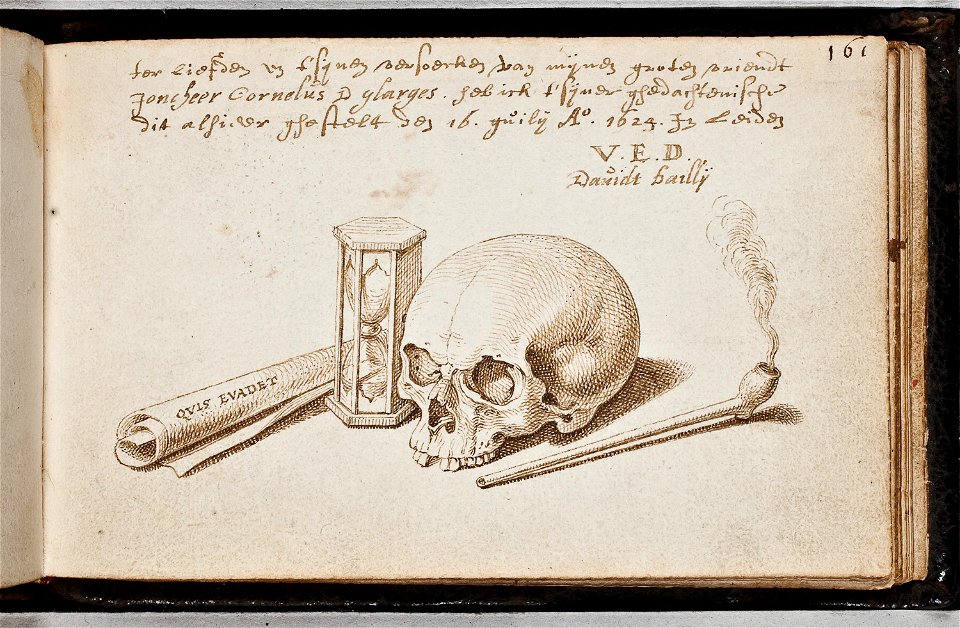 161
ter Liefden en t'sijnen versoecken van mijnen grooten vriendt
Joncheer Cornelus D glarges. heb ick t'sijner ghedachtenisse
dit alhier ghestelt den 16. guilij A°. 1624. In Leiden
V. E. D.
Davidt bailij
QVIS EVADET